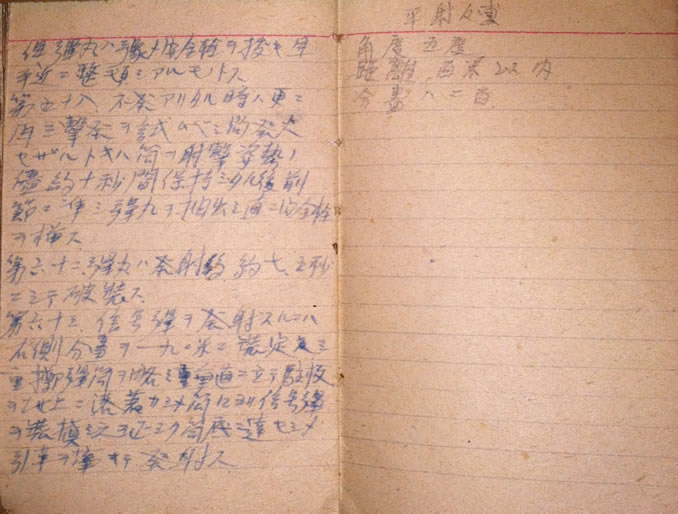 但シ弾丸ハ予メ安全栓ヲ抜キ
手近ニ整頓シアルモノトス
第五十八 不発アリタル時ハ更ニ
再三撃発ヲ試ムベシ尚発火
セザルトキハ筒ヲ射撃姿勢ノ
儘約十秒間保持シタル後前
節ニ準シ弾丸ヲ抽出シ直ニ安全栓
ヲ挿ス
第六十二、弾丸ハ発射後約七、五秒
ニシテ破裂ス
第六十三、信号弾ヲ発射スルニハ
右側分画ヲ一九〇米ニ装定シ
重擲弾筒ヲ略垂直ニシテ駐板
ヲ地上ニ落着カシメ筒口ヨリ信号弾
ヲ装填シ
筒底ニ達セシメ
引革ヲ牽キテ発射ス
平射
角度 五度
距離 百米以内
分画 八二百